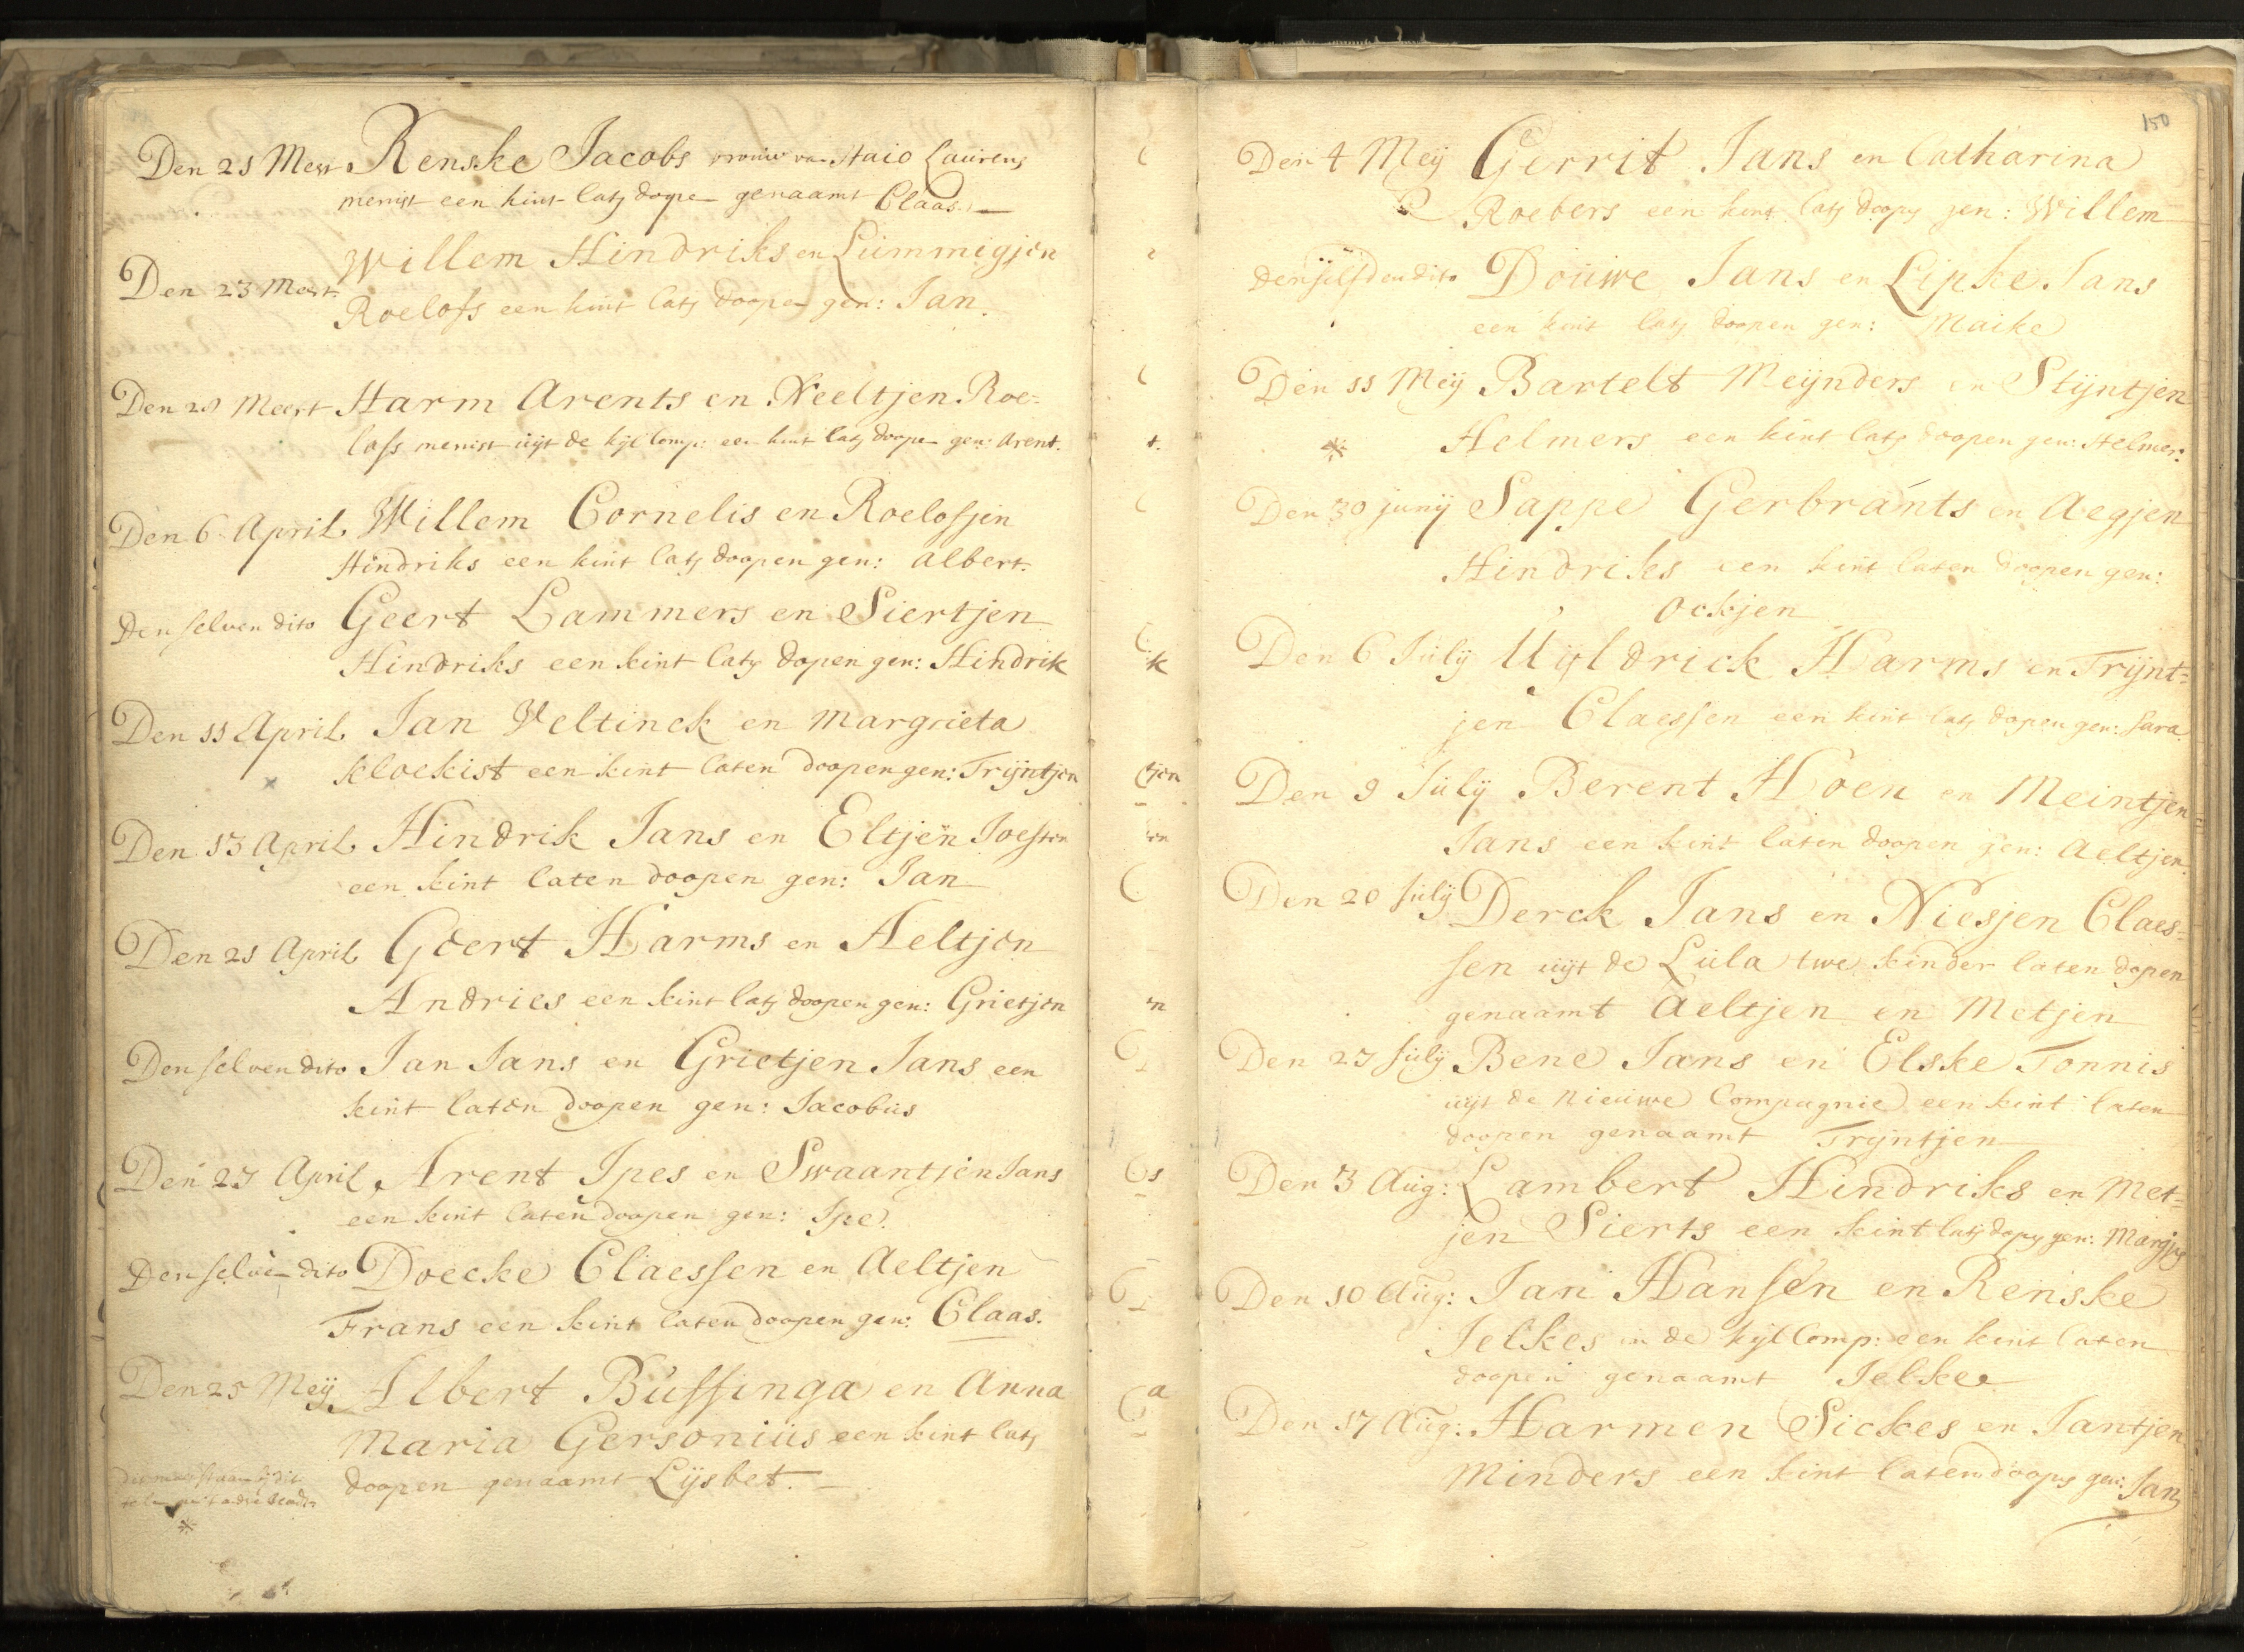 Den 21 Meert Renske Jacobs vrouw van Haio Laurens
menist een kint laty dope genaamt Claas.
Willem Hindriks en Lummigjen
Den 23 Meert
Roelofs een kint laty doopen gen: Jan.
Den 28 Meert Harm Arents en Neeltjen Roe=
lofs menist uijt de kijl Comp: een kint laty doopen gen: Arent.
Den 6 April Willem Cornelis en Roelofjen
Hindriks een kint laty doopen gen: Albert.
Den selven dito Geert Lammers en Siertjen
Hindriks een kint laty dopen gen: Hindrik
Den 11 April Jan Veltinck en Margrieta
klockist een kint laten doopen gen: Trijntjen
Den 13 April Hindrik Jans en Eltjen Joesten
een kint laten doopen gen: Jan
Den 21 April Geert Harms en Aeltjen
Andries een kint laty doopen gen: Grietjen
Den selven dito Jan Jans en Grietjen Jans een
kint laten doopen gen: Jacobus
Den 27 April Arent Ipes en Swaantjen Jans
een kint laten doopen gen: Ipe.
Den selven dito Doecke Claessen en Aeltjen
Frans een kint laten doopen gen: Claas.
Den 25 Meij Albert Bussinga en Anna
Maria Gersonius een kint laty
doopen genaamt Lijsbet.
150
Den 4 Meij Gerrit Jans en Catharina
Roebers een kint laty doopy gen: Willem
denselfden dito Douwe Jans en Lipke Jans
een kint laty doopen gen: Maike
Den 11 Meij Bartelt Meijnders en Stijntjen
Helmers een kint laty doopen gen: Helmer.
Den 30 junij Sappe Gerbrants en Aegjen
Hindriks een kint laten doopen gen:
Ockjen
Den 6 Julij Uijldrick Harms en Trijnt=
jen Claessen een kint laty dopen gen: Sara.
Den 9 Julij Berent Hoen en Meintjen
Jans een kint laten doopen gen: Aeltjen.
Den 20 Julij Derck Jans en Niesjen Claes=
sen uijt de Lula twe kinder laten dopen
genaamt Aeltjen en Metjen
Den 27 Julij Bene Jans en Elske Tonnis
uijt de Nieuwe Compagnie een kint laten
doopen genaamt Trijntjen
Den 3 Aug: Lambert Hindriks en Met=
jen Sierts een kint laty dopy gen:
Den 10 Aug: Jan Hansen en Renske
Jelkes in de kijl Comp: een kint laten
doopen genaamt Jelke
Den 17 Aug: Harmen Sickes en Jantjen
Minders een kint laten doopy gen: Jan